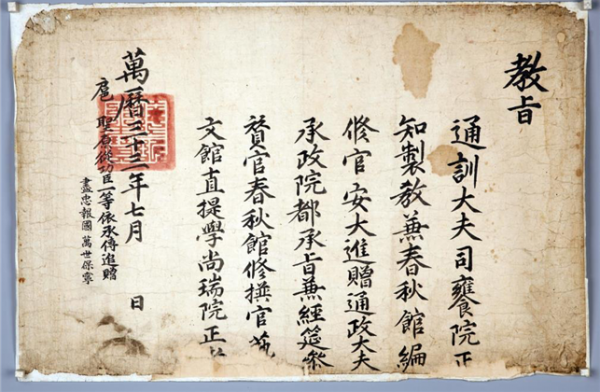 教旨
通訓大夫司饔院正
知製教兼春秋館編
修官安大進贈通政大夫
承政院都承旨兼經筵參
贊官春秋館修撰官兼
文館直提學尚瑞院正
萬曆三十三年七月 日
扈聖原從功臣一等依承傳追贈
盡忠報國 萬世保寧